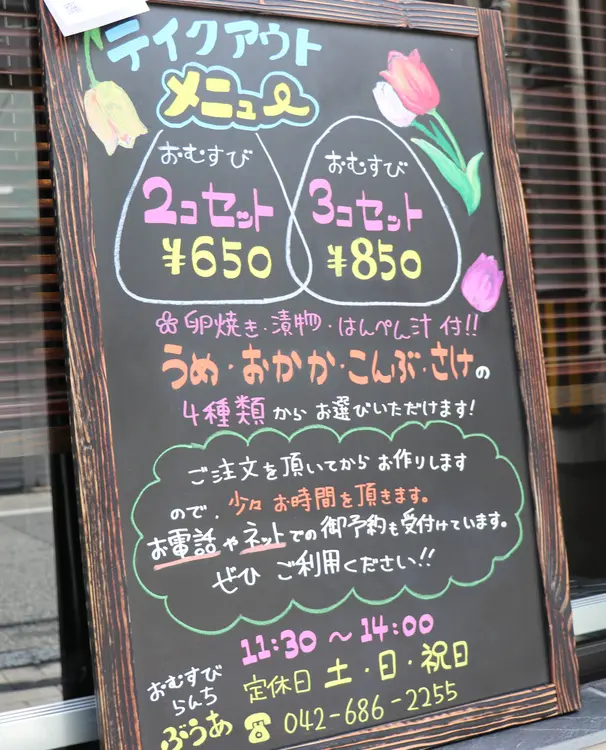 テイクアウト
メニュー
おむすび
2コセット
¥650
おむすび
3コセット
¥850
卵焼き・漬物・はんぺん汁 付!!
うめ・おかか・こんぶ・さけの
4種類からお選びいただけます!
ご注文を頂いてからお作りします
ので、少々お時間を頂きます。
お電話やネットでの御予約も受付けています。
ぜひ ご利用ください!!
11:30 〜 14:00
定休日 土・日・祝日
おむすび
らんち
ぶうあ
☎ 042-686-2255